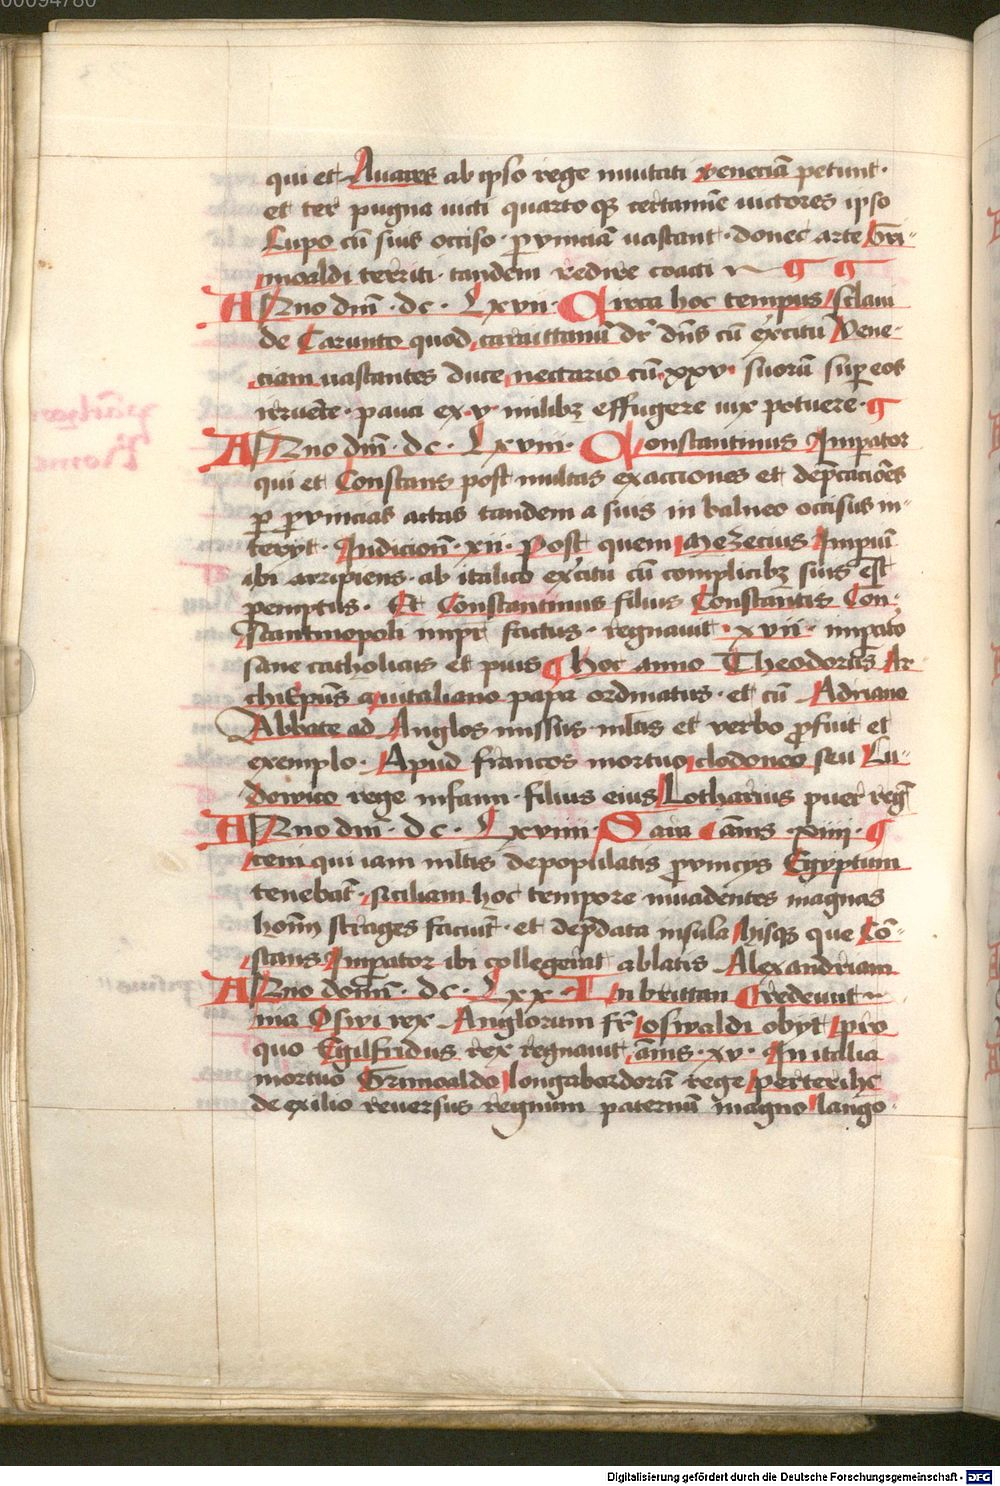 00094780
qui et Auares ab ipso rege inuitati veneciā petunt·
et ter pugna uicti quarto qꝫ certamīe uictores ipso
Lupo cū suis occiso· ꝓvinciā uastant· donec arte Gri-
moaldi territi· tandem redire coacti
Anno dn̄i· dc· Lxvii· Circa hoc tempus sclaui
de Carunto quod carnittanū dr̄ dn̄s cū exc̄itū Vene-
ciam uastantes duce nectario cū xxv· suorū suꝑ eos
irruēte· pauci ex v· milibꝫ effugere uix potuere·
Anno dn̄i· dc· Lxviii· Constantinus Imꝑator
qui et Constans post multas exacciones et dep̄cacōes
ꝑ ꝓvincias actas tandem a suis in balneo occisus in-
teryt· Indiciōn· xii· Post quem Mezecius Impiū
ibi arripiens· ab italico exc̄itu cū complicibꝫ suis est
peremptus· Et Constantinus filius Constantis Con-
stantinopoli impr̄ factus· regnauit· xvii· imꝑato
sane catholicus et pius hoc anno Theodorus Ar-
chiep̄us a uitaliano papa ordinatus· et cū Adriano
Abbate ad Anglos missus m̄ltis et verbo ꝓfuit et
exemplo· Apud francos mortuo clodoueo seu Lu-
dowico rege infami· filius eius Lotharius puer reḡ
Anno dn̄i· dc· Lxviiii· Sara ānis xiiii·
ceni qui iam m̄ltis depopulatis ꝓvincijs Egyptum
tenebāt· siciliam hoc tempore inuadentes magnas
hoīm strages faciūt· et dep̄data insula hisqꝫ que Cō-
stans Imꝑator ibi collegerat ablatis Alexandriam
Anno domī· dc· Lxx· In brittan redeunt
nia Oswi rex Anglorum fr̄ oswaldi obyt pro
quo Egilfridus rex regnauit ānis· xv· In italia
mortuo Grimoaldo longabardorū rege perterihc
de exilio reuersus regnum paternū magno lango-
Digitalisierung gefördert durch die Deutsche Forschungsgemeinschaft - DFG